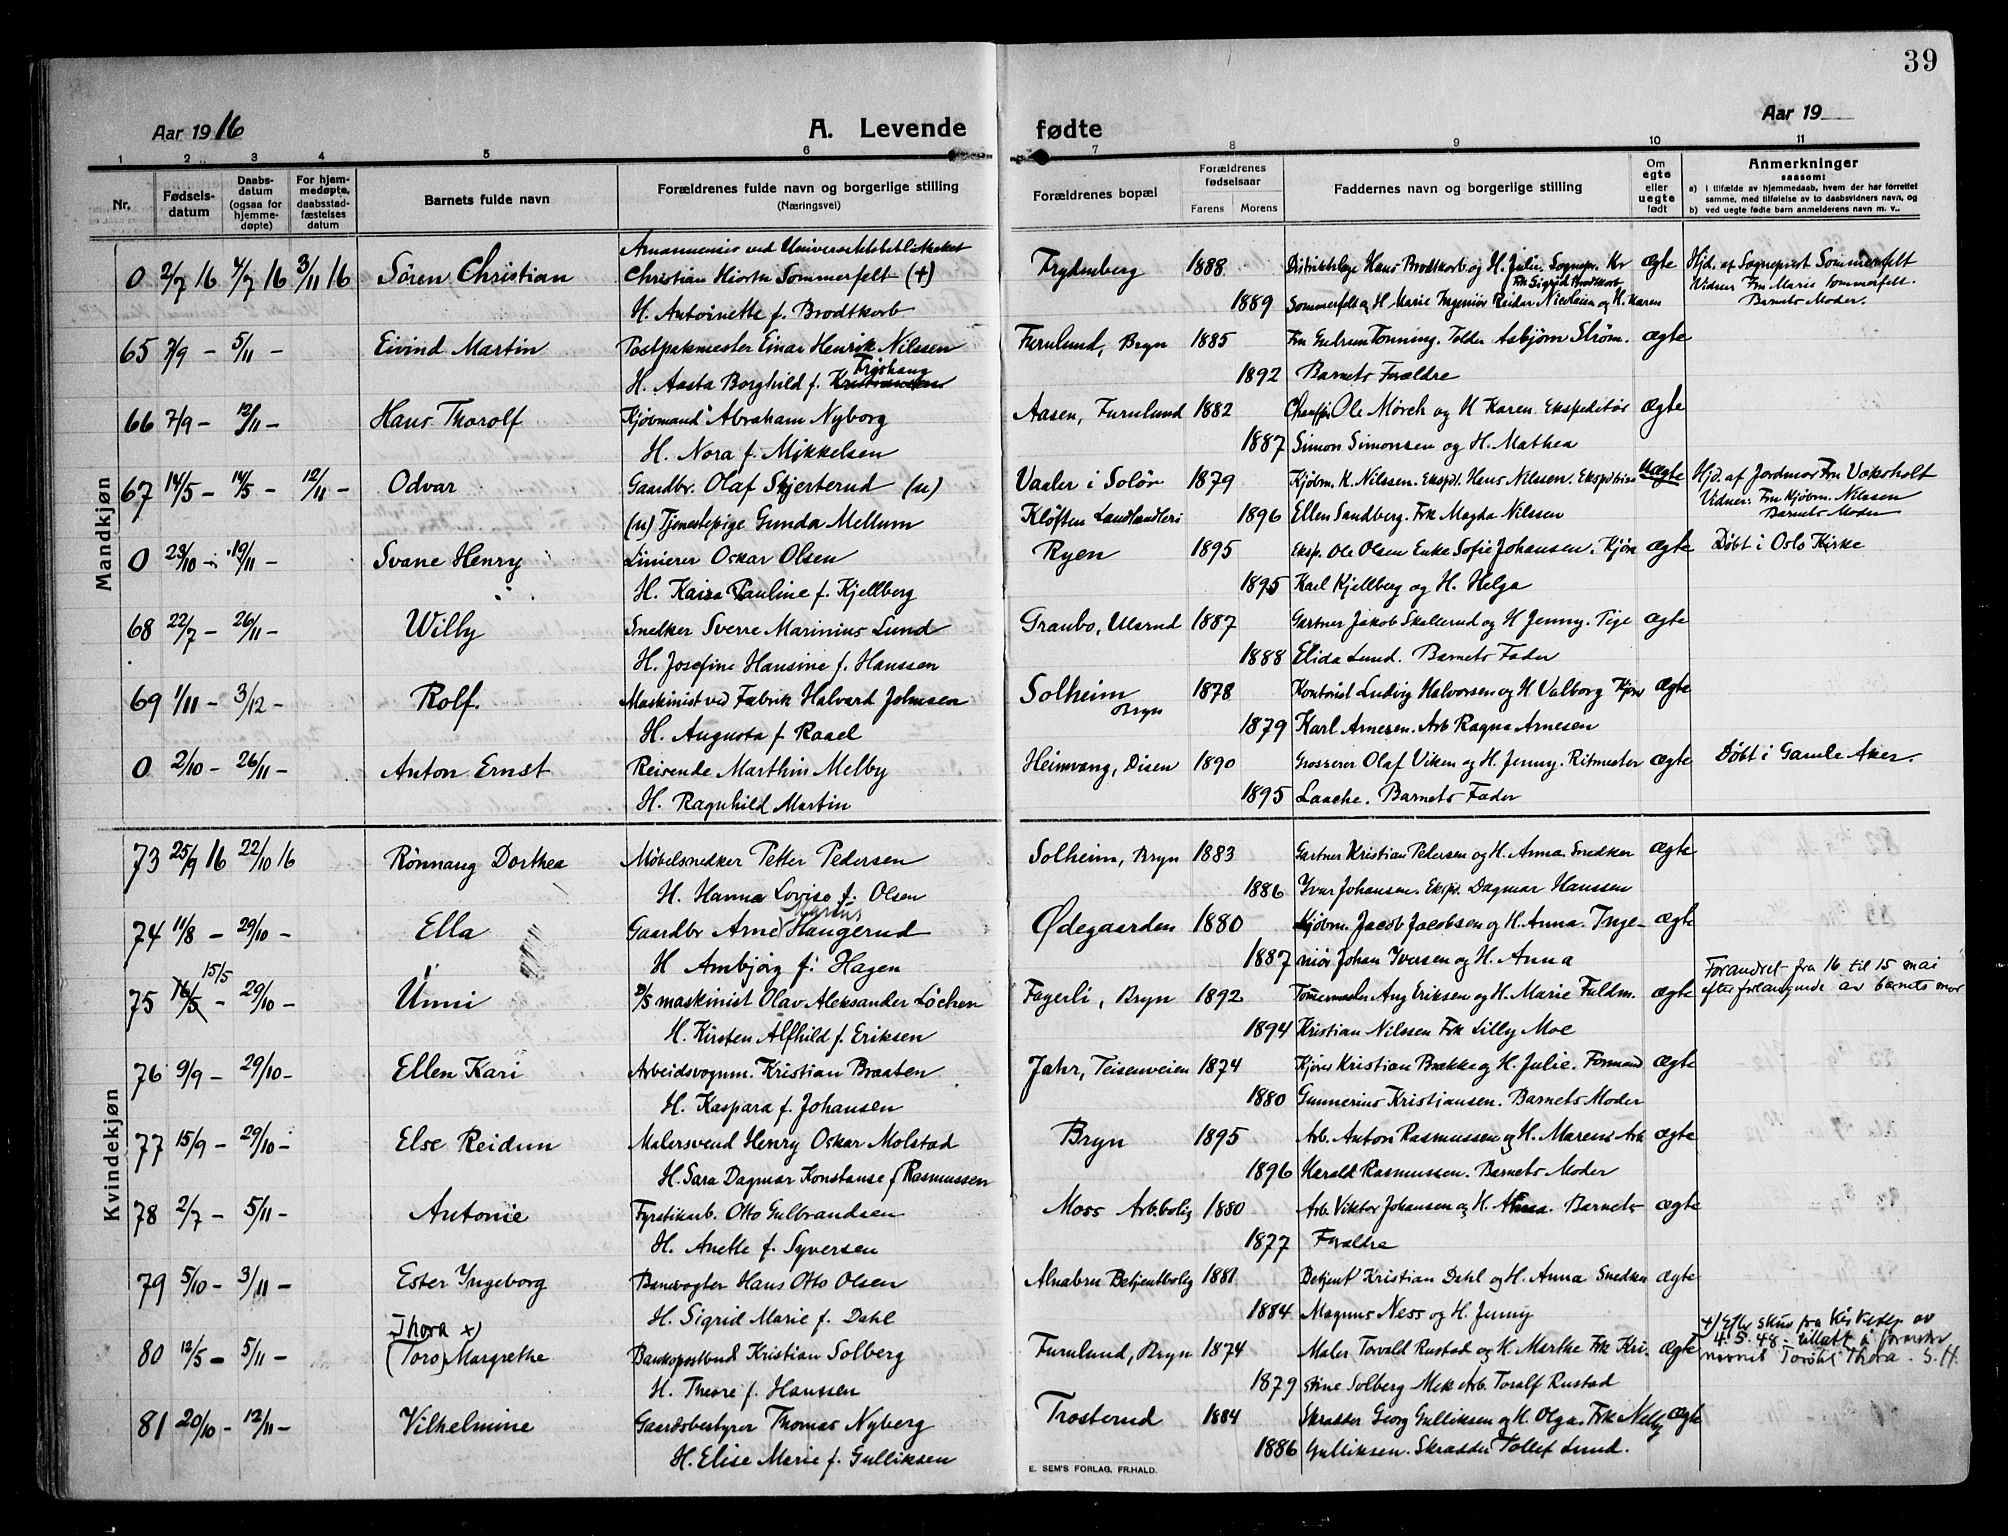 39
Aar 1916
A. Levende fødte
Aar 19
1 2 3 4 5 6 7 8 9 10 11
Nr.
Fødsels-datum
Daabs-datum (ogsaa for hjemme-døpte)
For hjem-medøpte, daabsstad-fæstelses datum
Barnets fulde navn
Forældrenes fulde navn og borgerlige stilling (Næringsvei)
Forældrenes bopæl
Forældrenes fødselsaar
Farens Morens
Faddernes navn og borgerlig stilling
Om egte eller uegte født
Anmerkninger saasom:
a) i tilfælde av hjemmedaab, hvem der har forrettet samme, med tilføielse av to daabsvidners navn, og
b) ved uegte fødte barn anmelderens navn m. v..
Mandkjøn
Amanuensis ved Universitetsbibliotheket
0 2/7 16 4/7 16 3/11 16 Sören Christian Christian Hiorth Sommerfelt (+) Frydenberg 1888 Distriktslæge Hans Brodtkorb og H. Julie. Sognepr. Kr ægte Hjd. af Sogneprest Sommerfelt
Frk Sigrid Brodtkorb Vidner Fru Marie Sommerfelt.
H. Antoinette f. Brodtkorb 1889 Sommerfelt og H Marie Ingeniør Reidar Nicolaisen og H. Karen Barnets Moder.
65 7/9 - 5/11 - Eivind Martin Postpakmester Einar Henrik Nilssen Furulund, Bryn 1885 Fru Gudrun Tønning. Tolder Asbjørn Strøm. ægte
Frøshaug
H. Aasta Borghild f. Kristiansen 1892 Barnets Forældre
66 7/9 - 12/11 - Hans Thorolf Kjøvmand Abraham Nyborg Aasen, Furulund 1882 Chauffør Ole Mørch og H Karen Ekspeditør Ægte
H. Nora f. Mikkelsen 1887 Simon Simonsen og H. Mathea
67 14/5 - 14/5 - 12/11 - Odvar Gaardbr. Olaf Skjerterud (u) Vaaler i Solör 1879 Kjöbm. K. Nilssen. Ekspdt. Hans Nilssen. Uægte Hjd. af Jordmor Fru Vakrholt
Vidner: Fru Kjövm. Nilssen
(u) Tjenestepige Gunda Mellum Kløften Landhandleri 1896 Ellen Sandberg. Frk Magda Nilssen Barnets Moder
0 23/10 - 19/11 - Svane Henry Linierer Oskar Olsen Ryen 1895 Eksp. Ole Olsen Enke Sofie Johansen. Kjøre ægte Döbt i Oslo Kirke
H. Kaisa Pauline f. Kjellberg 1895 Karl Kjellberg og H. Helga
68 22/7 - 26/11 - Willy Snedker Sverre Marinius Lund Granbo, Ulsrud 1887 Gartner Jakob Skallerud og H Jenny. Pige ægte
H. Josefine Hansine f. Hanssen 1888 Elida Lund. Barnets Fader
69 1/11 - 3/12 - Rolf. Maskinist ved Fabrik Halvard Johnsen Solheim Bryn 1878 Kontorist Ludvig Halvorsen og H Valborg Kjøre Ægte
H. Augusta f. Raael 1879 Karl Arnesen. Arb Ragna Arnesen
0 2/10 - 26/11 - Anton Ernst Reisende Marthin Melby Heimvang, Disen 1890 Grosserer Olaf Viken og H. Jenny. Ritmester ægte Döbt i Gamle Aker.
H. Ragnhild Martin 1895 Laache. Barnets Fader
Kvindekjøn
73 25/9 16 22/10 16 Rönnaug Dorthea Møbelsnedker Petter Pedersen Solheim, Bryn 1883 Gartner Kristian Pedersen og H. Anna. Snedker ægte
H. Hanna Lovise f. Olsen 1886 Yvar Johansen. Eksp. Dagmar Hanssen
Marius
74 11/8 - 29/10 - Ella Gaardbr Arne Haugerud Ødegaarden 1880 Kjöbm. Jacob Jacobsen og H. Anna. Inge- ægte
H Ambjörg f. Hagen 1887 niör Johan Iversen og H. Anna
15/5
75 16/5 - 29/10 - Unni D/S maskinist Olav Aleksander Löchen Fagerli, Bryn 1892 Tömmermester Aug Eriksen og H. Marie Fuldm. ægte Forandret fra 16 til 15 mai
efter forlangende av barnets mor
H. Kirsten Alfhild f. Eriksen 1894 Kristian Nilssen Frk Lilly Moe
76 9/9 - 29/10 - Ellen Kari Arbeidsvognm. Kristian Braaten Jahr, Teisenveien 1874 Kjörer Kristian Brække og H. Julie. Formand ægte
H. Kaspara f. Johansen 1880 Gunnerius Kristiansen. Barnets Moder
77 15/9 - 29/10 - Else Reidun Malersvend Henry Oskar Molstad Bryn 1895 Arb. Anton Rasmussen og H. Maren Arb. ægte
H. Sara Dagmar Konstanse f Rasmussen 1896 Harald Rasmussen. Barnets Moder
78 2/7 - 5/11 - Antonie Fyrstikarb. Otto Gulbrandsen Moss Arb.bolig 1880 Arb. Viktor Johansen og H. Anna. Barnets ægte
H. Anette f. Syversen 1877 Forældre
79 5/10 - 3/11 - Ester Yngeborg Banevogter Hans Otto Olsen Alnabru Betjentbolig 1881 Betjent Kristian Dahl og H. Anna Snedker ægte
H. Sigrid Marie f. Dahl 1884 Magnus Ness og H. Jenny
Thora x)
80 12/5 - 5/11 - (Toro) Margrethe Bankopostbud Kristian Solberg Furulund, Bryn 1874 Maler Torvald Rustad og H. Marthe Frk Kri- ægte +) Efter skriv fra av
4.5.48 - tillatt å forandre
navnet Toro til Thora. S.H.
H. Theore f. Hanssen 1879 stine Solberg Mek Arb. Toralf Rustad
81 20/10 - 12/11 - Vilhelmine Gaardsbestyrer Thomas Nyberg Trosterud 1884 Skrædder Georg Gulliksen og H. Olga. Frk Nelly ægte
H. Elise Marie f. Gulliksen 1886 Gulliksen. Skrædder Tollef Lund.
E. SEM'S FORLAG, FR.HALD.